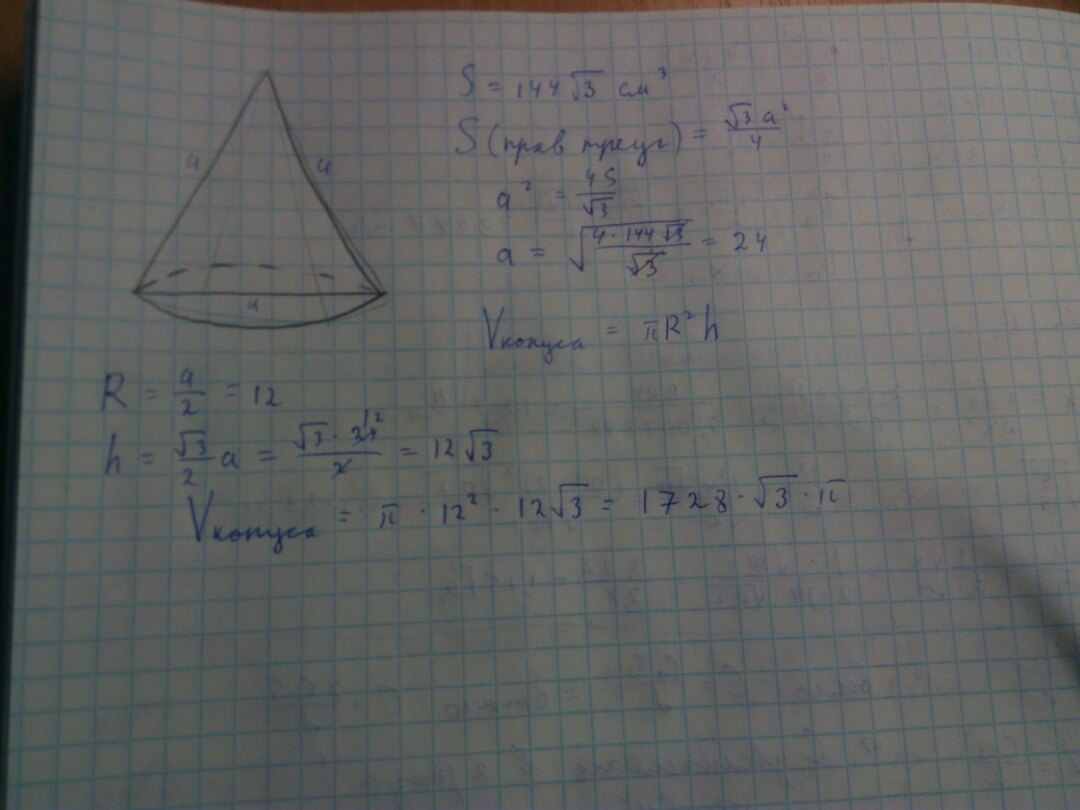 S = 144√3 см³
S (прав треуг) = √3 a² / 4
a² = 4S / √3
a = √(4 · 144 √3 / √3) = 24
a
a
a
Vконуса = πR²h
R = a / 2 = 12
h = √3 / 2 a = √3 · 24 12 / 2 = 12√3
Vконуса = π · 12² · 12√3 = 1728 · √3 · π